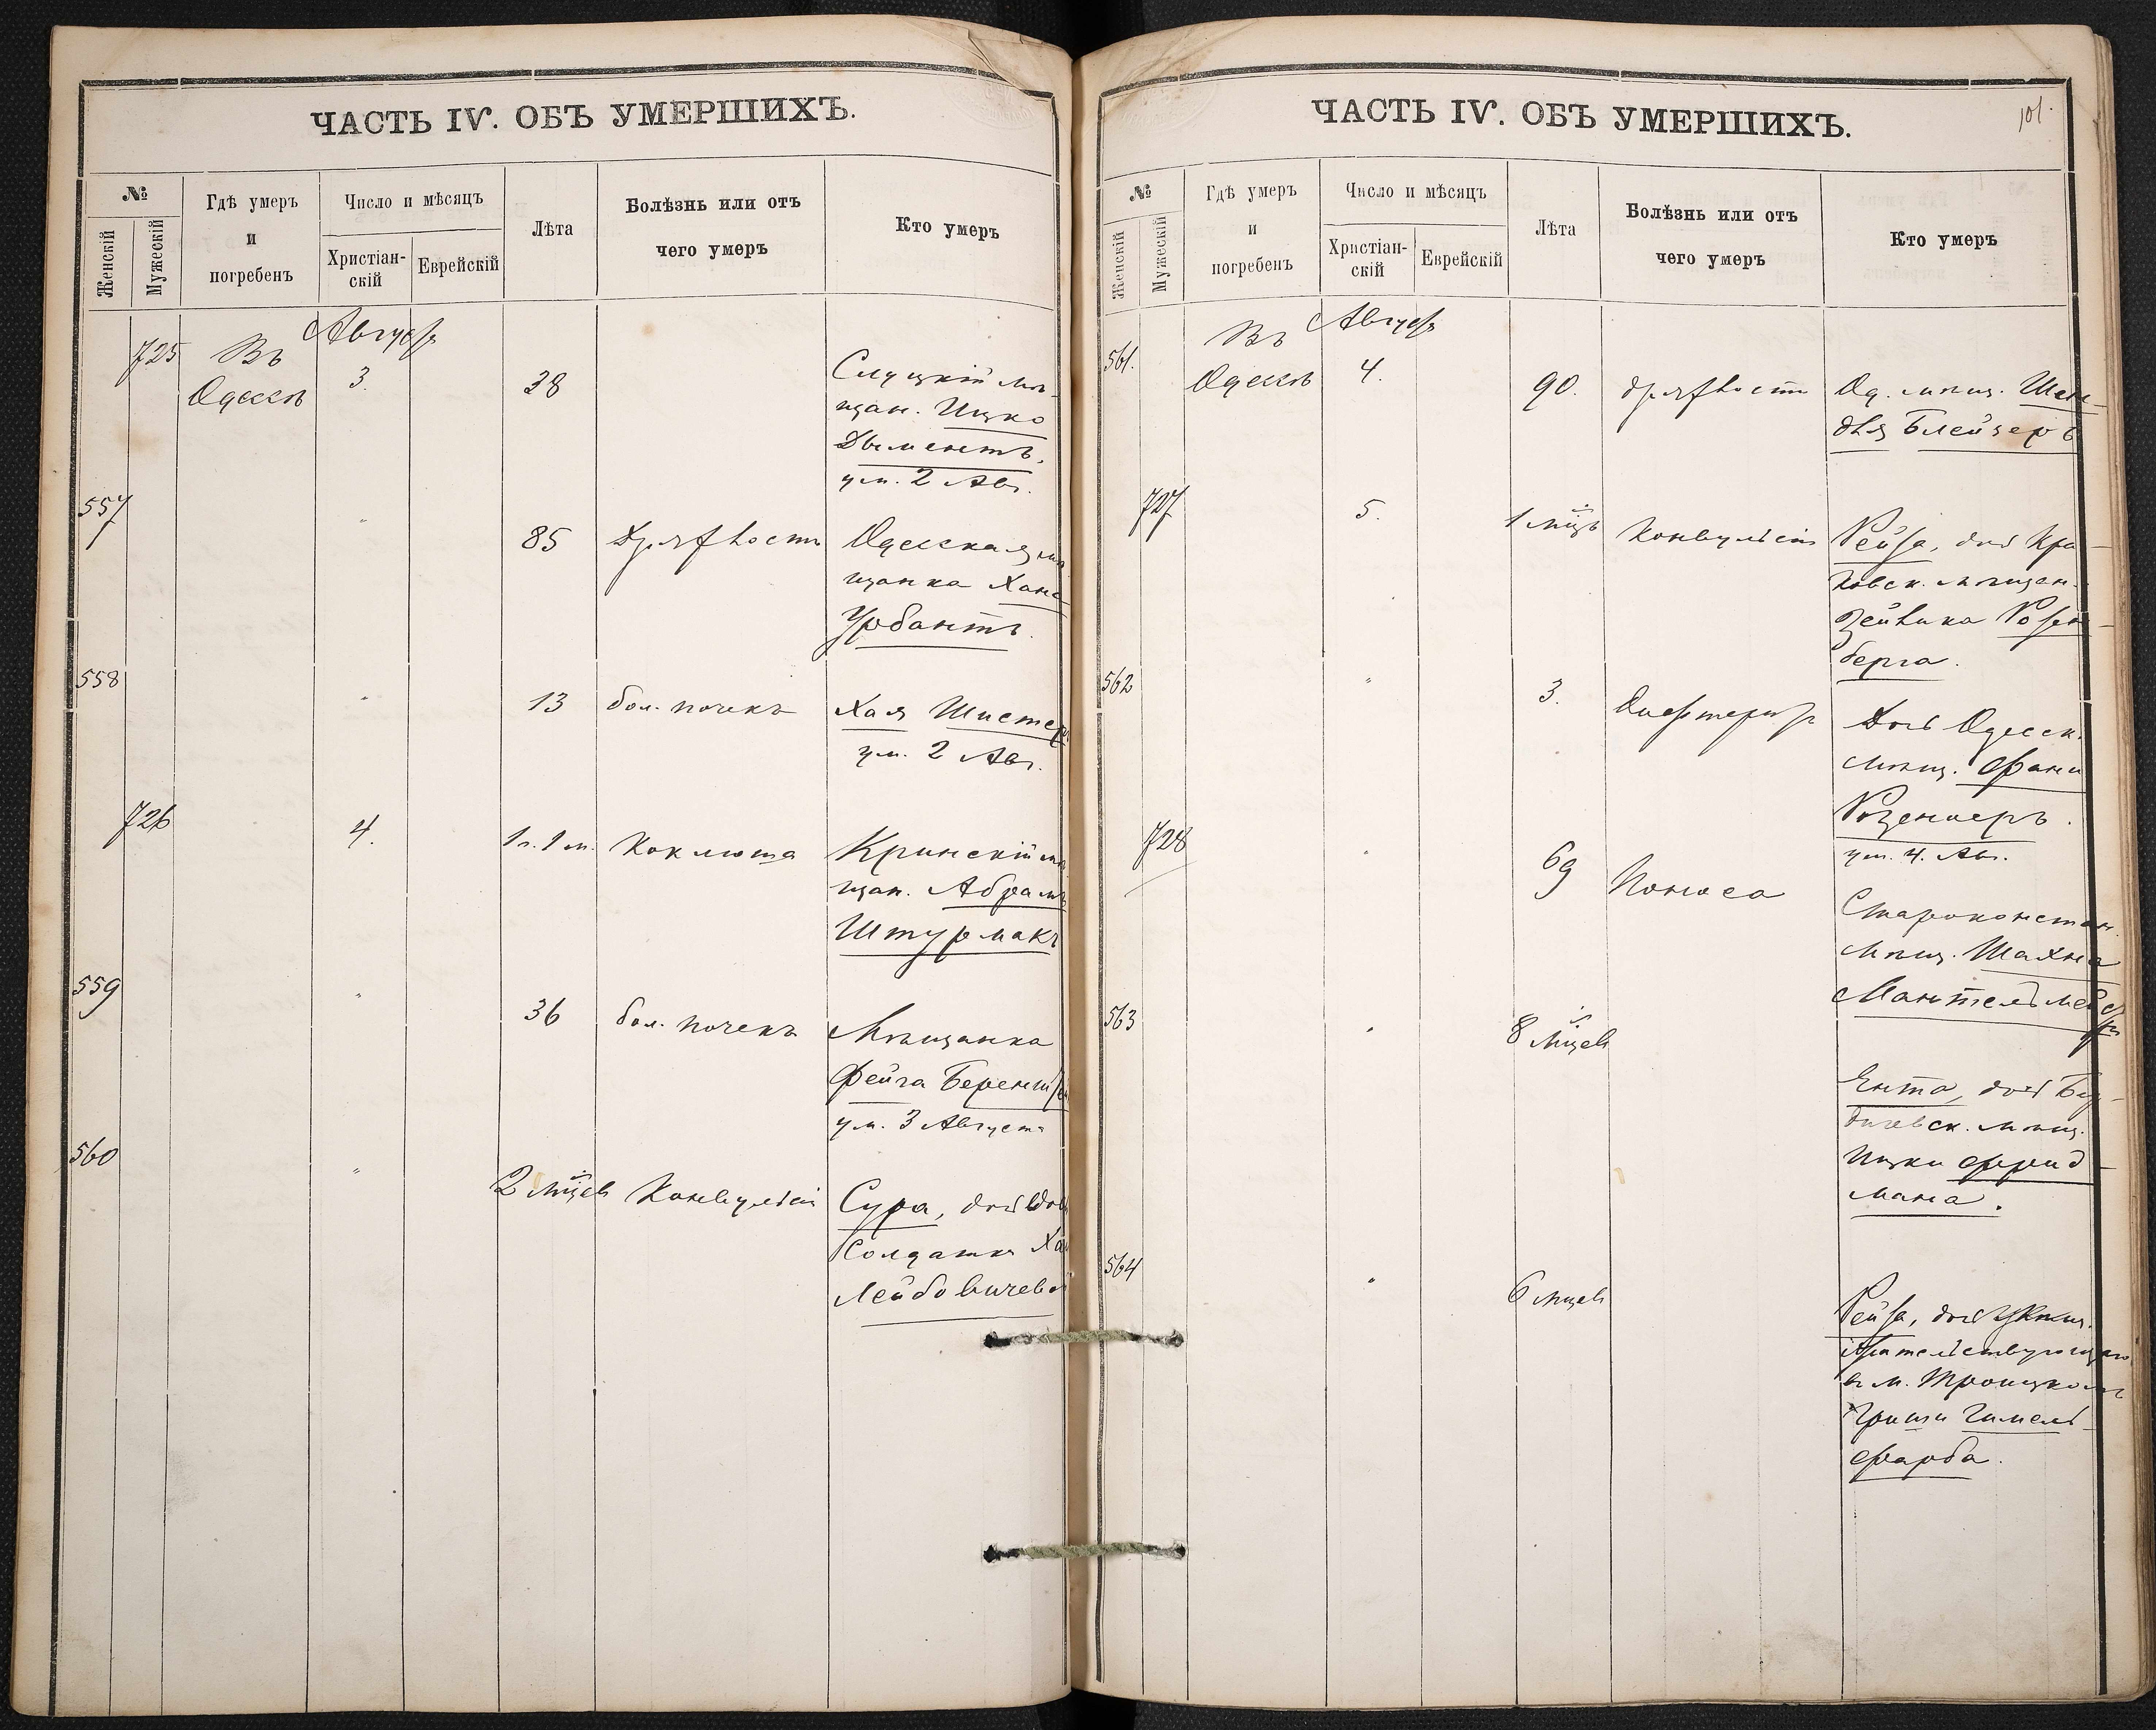 ЧАСТЬ IV. ОБЪ УМЕРШИХЪ.
№
Женскій
Мужескій
Гдѣ умеръ
и
погребенъ
Число и мѣсяцъ
Христіан-
скій
Еврейскій
Лѣта
Болѣзнь или отъ
чего умеръ
Кто умеръ
725
Въ
Одессѣ
Августъ
3.
38
Слуцкій мѣ-
щан. Ицко
Дыментъ,
ум. 2 Авг.
557
"
85
Дряхлость
Одесская мѣ
щанка Хана
Урбантъ.
558
"
13
бол. почекъ
Хая Шистер
ум. 2 Авг.
726
4.
1 г. 1 м.
Коклюша
Кринскій мѣ
щан. Абрамъ
Штурмакъ
559
"
36
бол. почекъ
Мѣщанка
Фейга Беренште
ум. 3 Августа
560
"
2 мѣцев
Конвульсій
Сура, доч вдов
Солдатки Ха
Лейбовичевой
ЧАСТЬ IV. ОБЪ УМЕРШИХЪ.
101.
№
Женскій
Мужескій
Гдѣ умеръ
и
погребенъ
Число и мѣсяцъ
Христіан-
скій
Еврейскій
Лѣта
Болѣзнь или отъ
чего умеръ
Кто умеръ
561.
Въ
Одессѣ
Августъ
4.
90.
дряхлости
Од. мѣщ. Шен-
для Блейзеръ
727
5.
1 мѣцъ
Конвульсій
Рейза, доч Кра-
ковск. мѣщан.
Зейлика Розен-
берга.
562
"
3.
Дифтеритъ
Дочь Одесск.
мѣщ. Фани
Розеноеръ.
ум. 4. Авг.
728
"
69
Поноса
Староконстан.
мѣщ. Шахна
Мантельмейстръ
563
"
8 мѣцев
Ента, доч Бер-
дичевск. мѣщ.
Ицки Фрид-
мана.
564
"
6 мѣцев
Рейза, доч
жительствующаго
въ м. Троицкомъ
Гриши Гимель-
фарба.